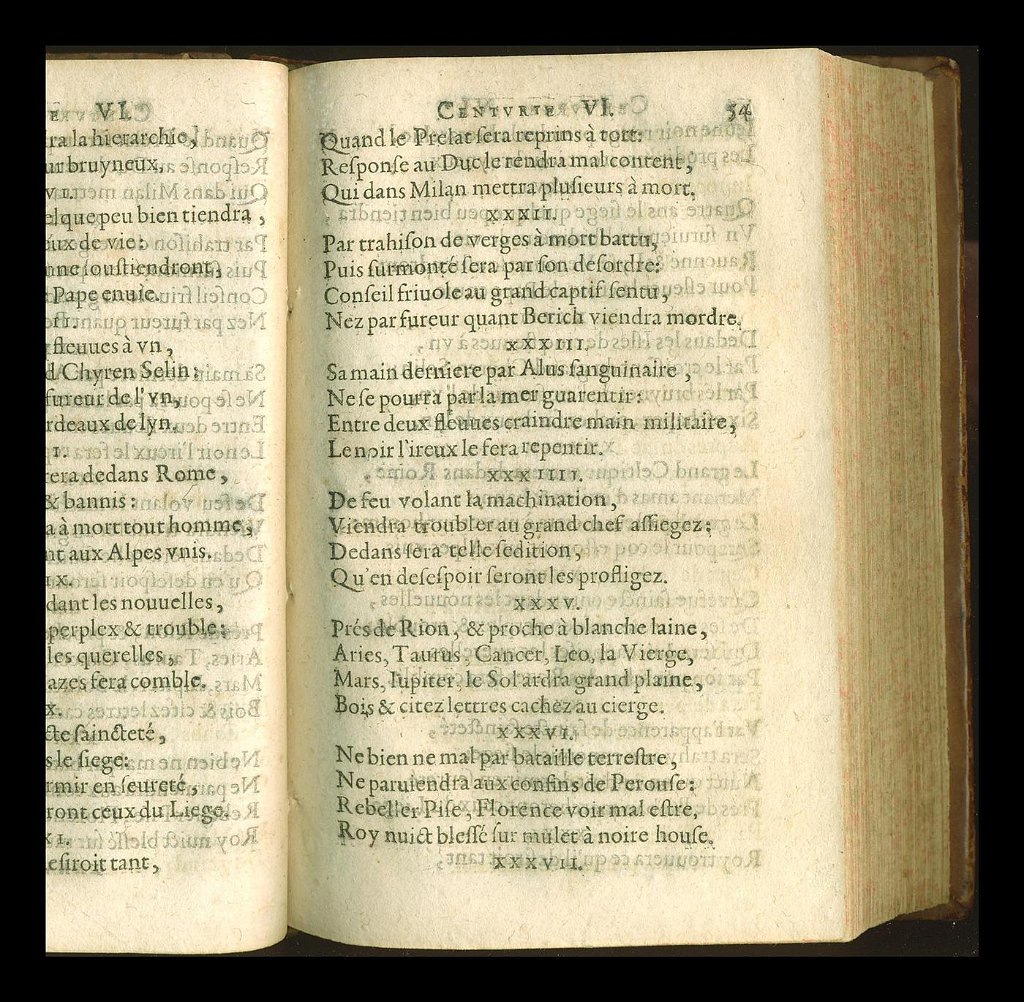 E VI.
ra la hierarchie,
ur bruyneux.
VII.
elque peu bien tiendra,
eux de vie:
nne ſouſtiendront,
Pape enuie.
II.
fleuues à vn,
d Chyren Selin:
fureur de l'vn,
rdeaux de lyn.
I.
rera dedans Rome,
& bannis:
a à mort tout homme,
nt aux Alpes vnis.
IX.
dant les nouuelles,
perplex & trouble:
les querelles,
azes ſera comble.
X.
cte ſaincteté,
s le ſiege:
rmir en ſeureté,
ront ceux du Liege.
XI.
eſiroit tant,
CENTVRIE VI. 54
Quand le Prelat ſera reprins à tort:
Reſponſe au Duc le rendra mal content,
Qui dans Milan mettra pluſieurs à mort.
XXXII.
Par trahiſon de verges à mort battu,
Puis ſurmonté ſera par ſon deſordre:
Conſeil friuole au grand captif ſentu,
Nez par fureur quant Berich viendra mordre.
XXXIII.
Sa main derniere par Alus ſanguinaire,
Ne ſe pourra par la mer guarentir:
Entre deux fleuues craindre main militaire,
Le noir l'ireux le fera repentir.
XXXIIII.
De feu volant la machination,
Viendra troubler au grand chef aſſiegez:
Dedans ſera telle ſedition,
Qu'en deſeſpoir ſeront les profligez.
XXXV.
Prés de Rion, & proche à blanche laine,
Aries, Taurus, Cancer, Leo, la Vierge,
Mars, Iupiter, le Sol ardra grand plaine,
Bois & citez lettres cachez au cierge.
XXXVI.
Ne bien ne mal par bataille terreſtre,
Ne paruiendra aux confins de Perouſe:
Rebeller Piſe, Florence voir mal eſtre,
Roy nuict bleſſé ſur mulet à noire houſe.
XXXVII.